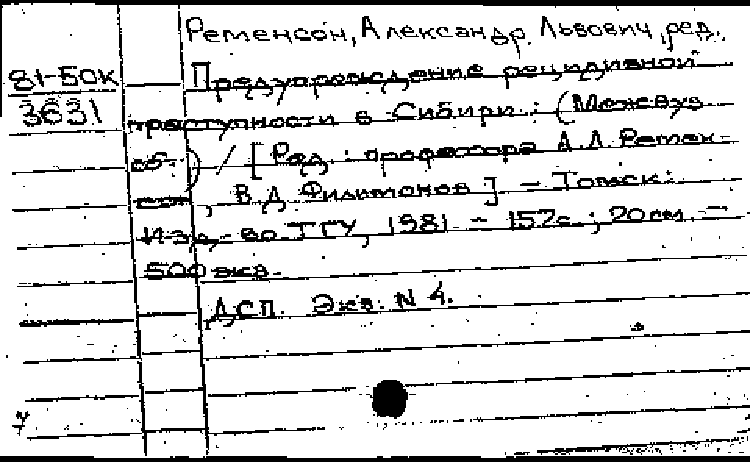 Ременсон, Александр Львович, ред.
81-50К
3631
Предупреждение рецидивной
преступности в Сибири: (Межвуз.
сб.) / [Ред.: профессора А.Л. Ремен-
сон, В.Д. Филимонов]. - Томск:
Изд-во ТГУ, 1981 - 152с.; 20см. -
500 экз.
ДСП. Экз. N 4.